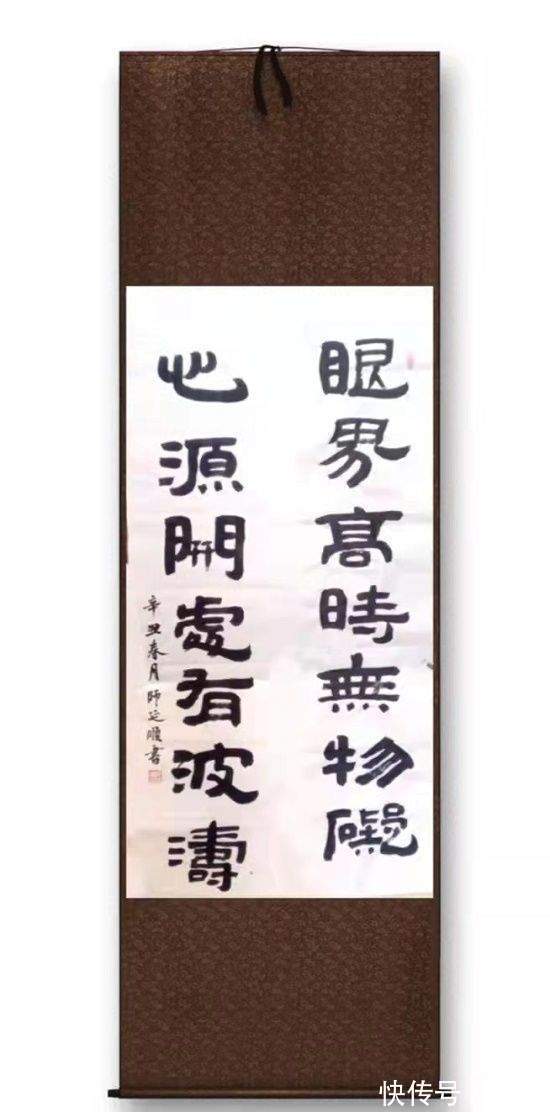 眼界高時無物礙
心源開處有波濤
辛丑春月師延順書
快传号